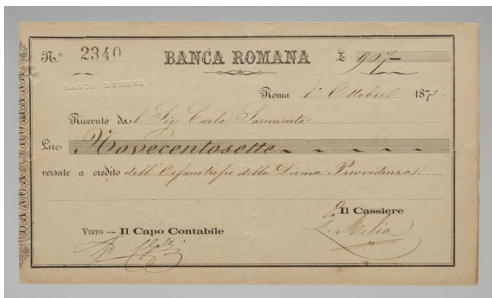 N.º 2340 BANCA ROMANA £ 907
BANCA ROMANA
Roma 1º Ottobre 187
Ricevuto dal Sig. Carlo
Lire Novecentosette
versate a credito dell'Orfanotrofio della Divina Provvidenza
Il Cassiere
VISTO — Il Capo Contabile